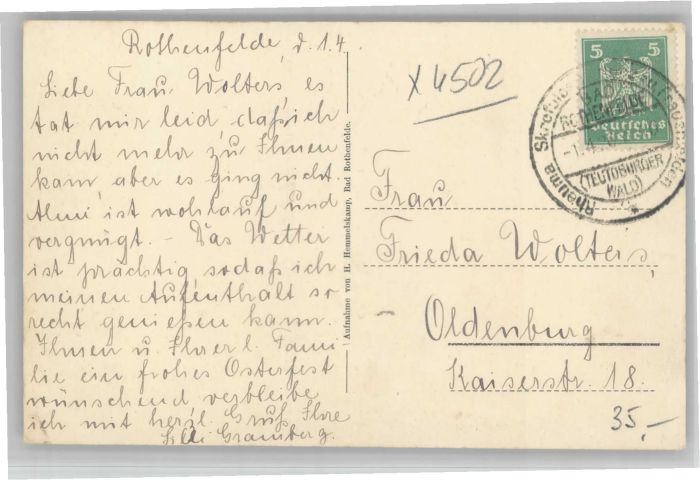 Rothenfelde, d. 1.4.
Liebe Frau Wolters, es
tat mir leid dass ich
nicht mehr zu Ihnen
kam, aber es ging nicht.
Almi ist wohlauf und
vergnügt. – Das Wetter
ist prächtig sodaß ich
meinen Aufenthalt so
recht genießen kann.
Ihnen u. Ihrer l. Fami
lie ein frohes Osterfest
wünschend verbleibe
ich mit herzl. Gruß Ihre
Gramberg.
Aufnahme von H. Hemmelskamp, Bad Rothenfelde.
x 4502
5 5
Deutsches
Reich
BAD
ROTHENFELDE
(TEUTOBURGER
WALD)
Rheuma
Frau
Frieda Wolters,
Oldenburg
Kaiserstr. 18.
35,-